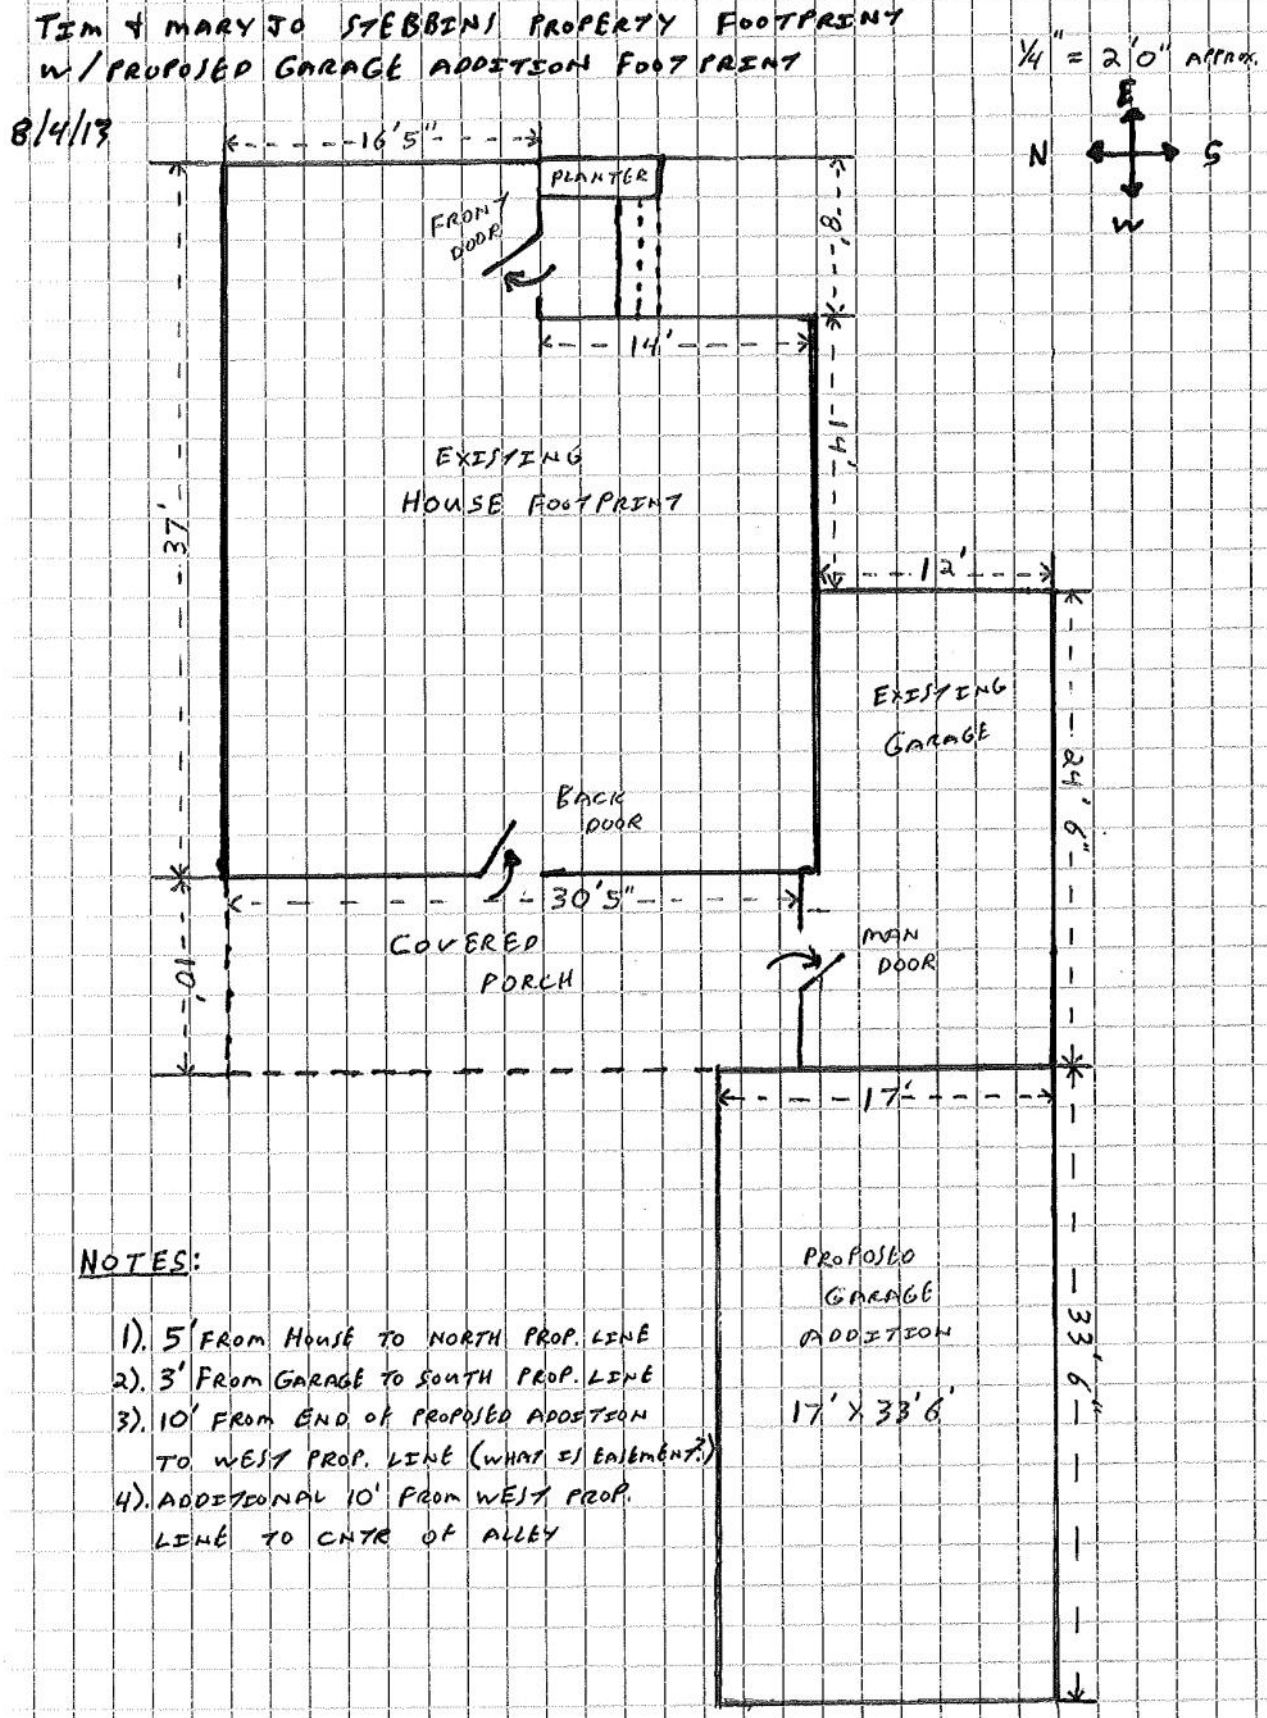 TIM & MARY JO STEBBINS PROPERTY FOOTPRINT
W/ PROPOSED GARAGE ADDITION FOOTPRINT
1/4" = 2'0" APPROX.
8/4/13
E
N
S
W
16'5"
PLANTER
FRONT
DOOR
8'
14'
14'
EXISTING
HOUSE FOOTPRINT
37'
12'
EXISTING
GARAGE
24'6"
BACK
DOOR
30'5"
COVERED
PORCH
10'
MAN
DOOR
17'
PROPOSED
GARAGE
ADDITION
17' X 33'6'
33'6"
NOTES:
1). 5' FROM HOUSE TO NORTH PROP. LINE
2). 3' FROM GARAGE TO SOUTH PROP. LINE
3). 10' FROM END OF PROPOSED ADDITION
TO WEST PROP. LINE (WHAT IS EASEMENT?)
4). ADDITIONAL 10' FROM WEST PROP.
LINE TO CNTR OF ALLEY